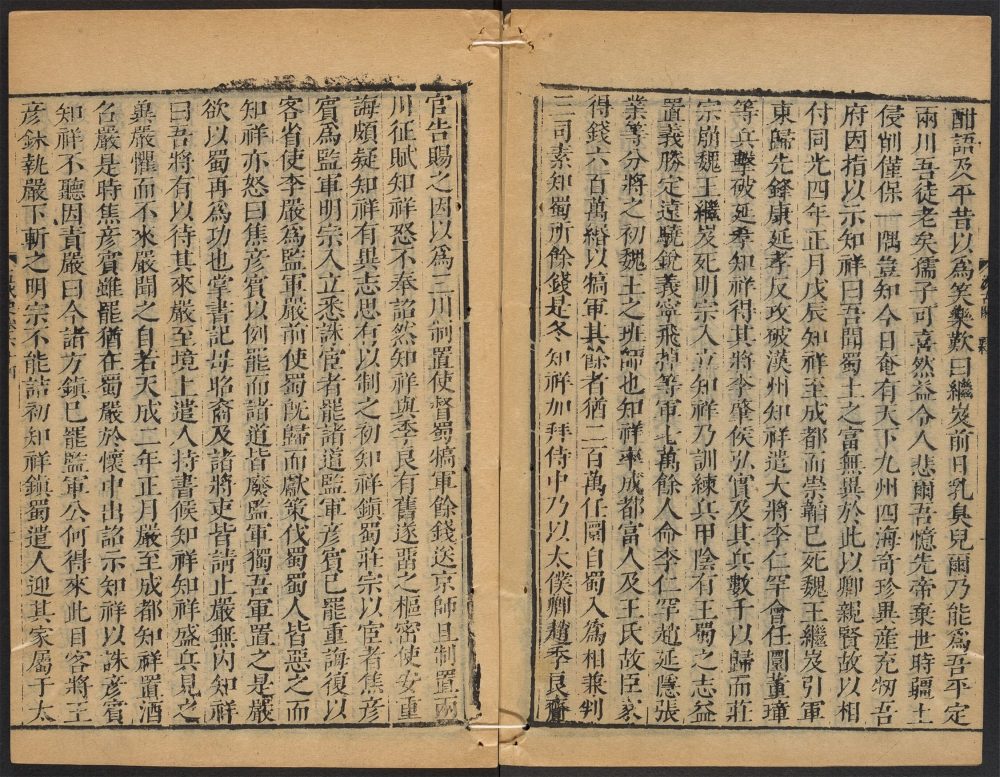 酣語及平昔以爲笑樂歎曰繼岌前日乳臭兒爾乃能爲吾平定
兩川吾徒老矣儒子可喜然益令人悲爾吾憶先帝棄世時疆土
侵削僅保一隅豈知今日奄有天下九州四海奇珍異産充牣吾
府因指以示知祥曰吾聞蜀土之富無異於此以卿親賢故以相
付同光四年正月戊辰知祥至成都而崇韜已死魏王繼及引軍
東歸先鋒康延孝反攻破漢州知祥遣大將李仁罕會任圜董璋
等兵擊破延孝知祥得其將李肇侯弘實及其兵數千以歸而莊
宗崩魏王繼岌死明宗入立知祥乃訓練兵甲陰有王蜀之志益
置義勝定遠驍銳義寧飛棹等軍七萬餘人命李仁罕趙延隱張
業等分將之初魏王之班師也知祥率成都富人及王氏故臣家
得錢六百萬緡以犒軍其餘者猶二百萬任圜自蜀入爲相兼判
三司素知蜀所餘錢是冬知祥加拜侍中乃以太僕卿趙季良齎
官告賜之因以爲三川制置使督蜀犒軍餘錢送京師且制置兩
川征賦知祥怒不奉詔然知祥與季良有舊遂畱之樞密使安重
誨頗疑知祥有異志思有以制之初知祥鎮蜀莊宗以宦者焦彥
賓爲監軍明宗入立悉誅宦者罷諸道監軍彥賓已罷重誨復以
客省使李嚴爲監軍嚴前使蜀既歸而獻策伐蜀蜀人皆惡之而
知祥亦怒曰焦彥賓以例罷而諸道皆廢監軍獨吾軍置之是嚴
欲以蜀再爲功也掌書記母昭裔及諸將吏皆請止嚴無內知祥
曰吾將有以待其來嚴至境上遣人持書候知祥知祥盛兵見之
兾嚴懼而不來嚴聞之自若天成二年正月嚴至成都知祥置酒
召嚴是時焦彥賓雖罷猶在蜀嚴於懷中出詔示知祥以誅彥賓
知祥不聽因責嚴曰今諸方鎮已罷監軍公何得來此目客將王
彥銖執嚴下斬之明宗不能詰初知祥鎮蜀遣人迎其家屬于太